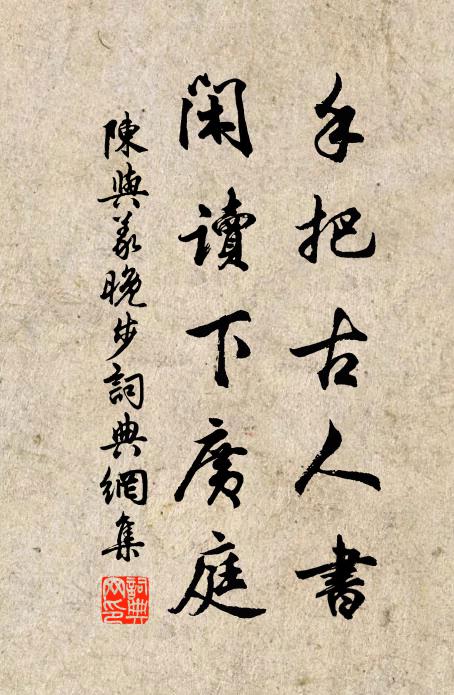 手把古人書
閑讀下廣庭
陳與義晚步詞典網集
詞典网印